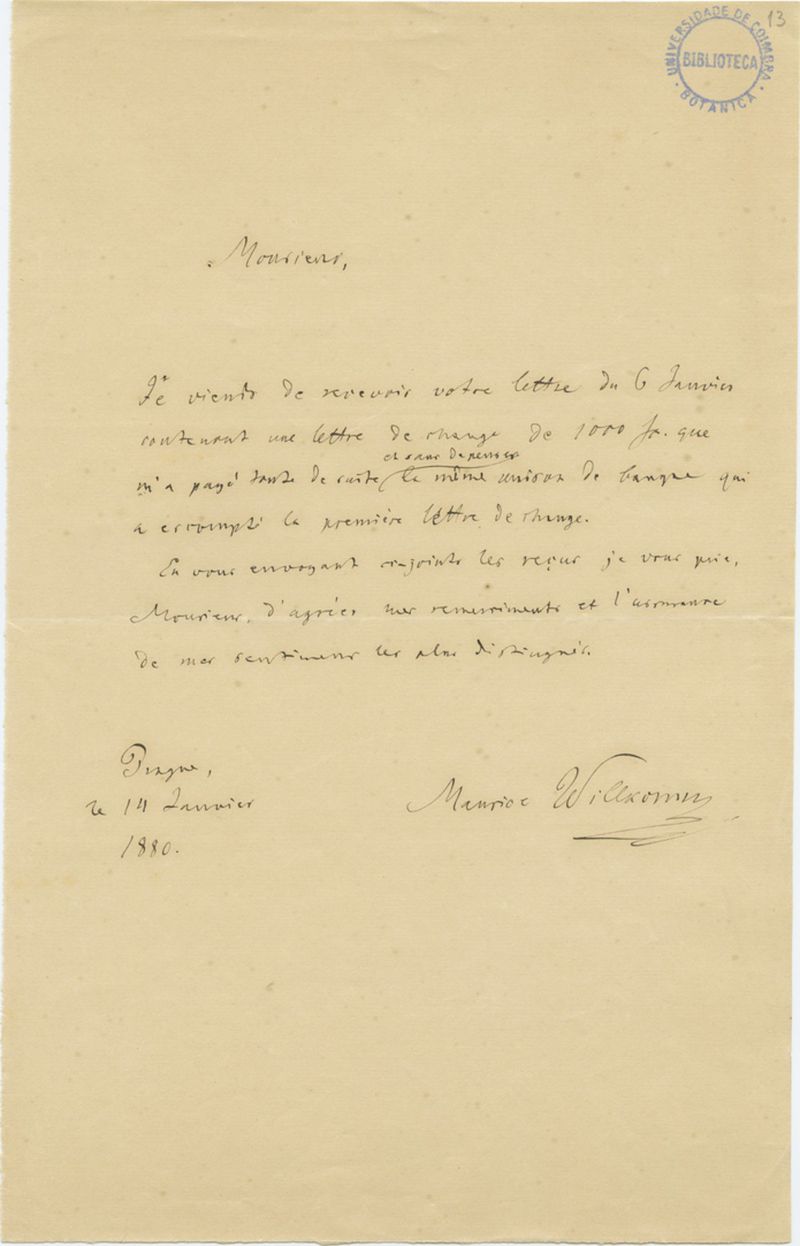 13
UNIVERSIDADE DE COIMBRA
BIBLIOTECA
BOTANICA
Monsieur,
Je viens de recevoir votre lettre du 6 Janvier
contenant une lettre de change de 1000 fr. que
et sans dépenses
m'a payé toute de suite la même maison de banque qui
a escompté la première lettre de change.
En vous envoyant ci-joints les reçus je vous prie,
Monsieur, d'agréer mes remerciments et l'assurance
de mes sentimens les plus distingués.
Prague,
le 14 Janvier
1880.
Maurice Willkomm